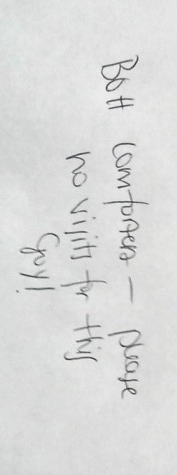 Both comforters — please
no visits for this
Guy!